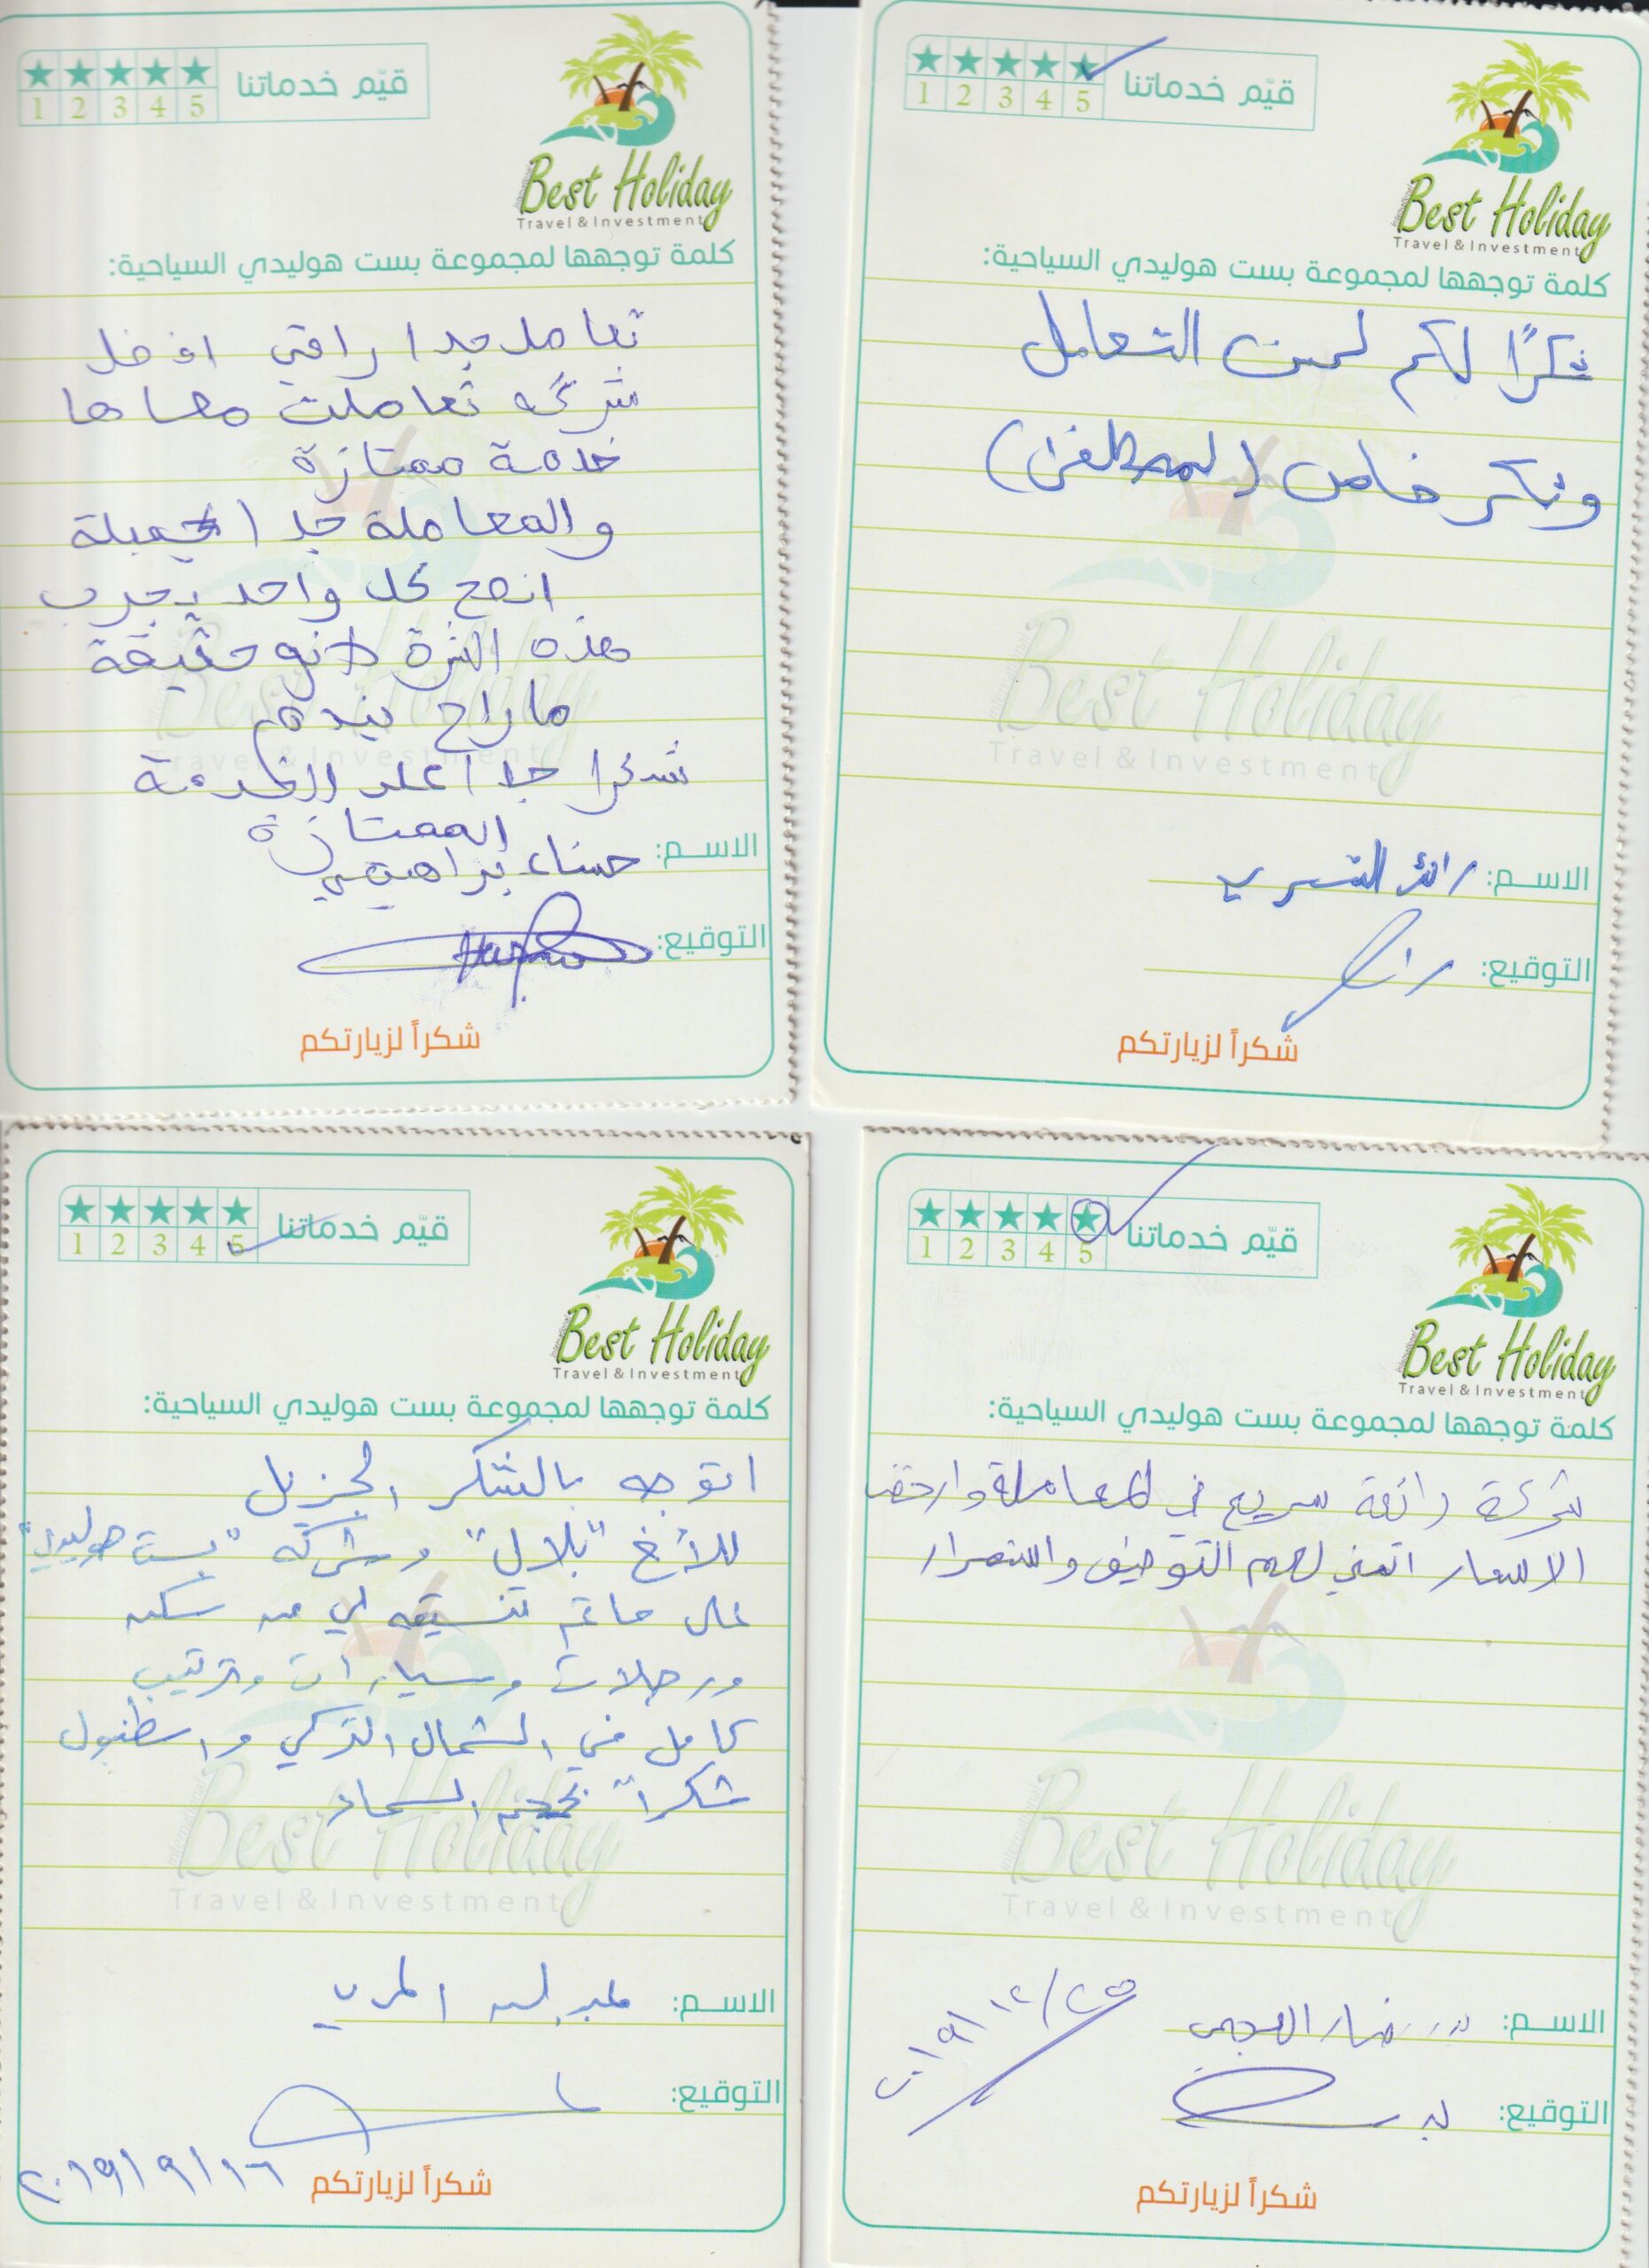 قيّم خدماتنا
1 2 3 4 5
Best Holiday
Travel & Investment
كلمة توجهها لمجموعة بست هوليدي السياحية:
شكرًا لكم لحسن التعامل
وشكر خاص (لمصطفى)
الاسم: رائد
التوقيع: رائد
شكراً لزيارتكم
قيّم خدماتنا
1 2 3 4 5
Best Holiday
Travel & Investment
كلمة توجهها لمجموعة بست هوليدي السياحية:
تعامل جدا راقي افضل
شركه تعاملت معاها
خدمة ممتازة
والمعاملة جدا جميلة
انصح كل واحد يجرب
هذه لانو حقيقة
ماراح يندم
شكرا جدا على الخدمة
الممتازة
الاسم: حسناء براهيمي
التوقيع:
شكراً لزيارتكم
قيّم خدماتنا
1 2 3 4 5
Best Holiday
Travel & Investment
كلمة توجهها لمجموعة بست هوليدي السياحية:
شركة رائعة سريع في المعاملة وارخص
الاسعار اتمنى لهم التوفيق واستمرار
الاسم:
٢٠١٩/١٢/٢٥
التوقيع: بدر
شكراً لزيارتكم
قيّم خدماتنا
1 2 3 4 5
Best Holiday
Travel & Investment
كلمة توجهها لمجموعة بست هوليدي السياحية:
اتوجه بالشكر الجزيل
للأخ "بلال" وشركه "بست هوليدي"
على ماتم تنسيقه لي من سكن
ورحلات وسيارات وترتيب
كامل في الشمال التركي واسطنبول
شكراً بحجم السماء
الاسم: عبدالله المري
التوقيع:
٢٠١٩/٩/١٦
شكراً لزيارتكم